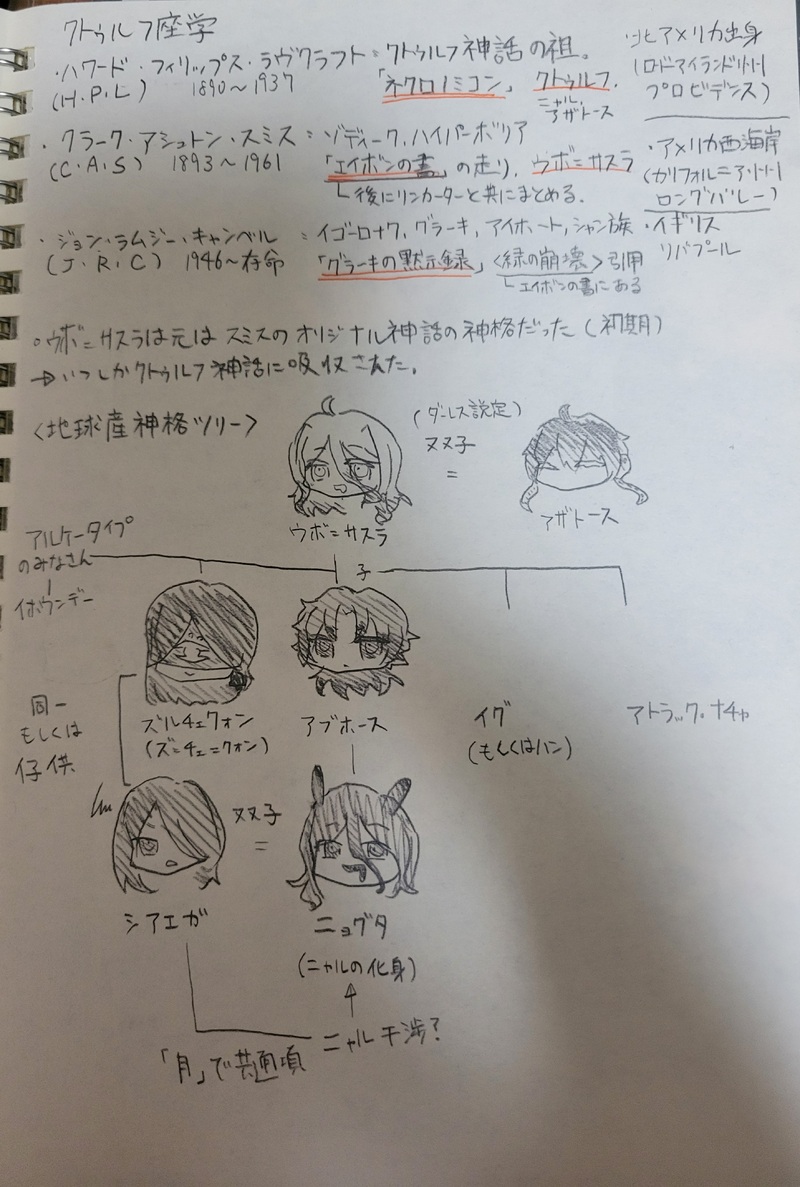 クトゥルフ座学
・ハワード・フィリップス・ラヴクラフト：クトゥルフ神話の祖。
(H.P.L) 1890～1937 「ネクロノミコン」 クトゥルフ、
ニャル、
アザトース
・北アメリカ出身
(ロードアイランド州
プロビデンス)
・クラーク・アシュトン・スミス：ゾティーク、ハイパーボリア
(C・A・S) 1893～1961 「エイボンの書」の走り、ウボ=サスラ
└後にリンカーターと共にまとめる。
・アメリカ西海岸
(カリフォルニア州
ロングバレー)
・ジョン・ラムジー・キャンベル：イゴーロナク、グラーキ、アイホート、シャン族
(J・R・C) 1946～存命 「グラーキの黙示録」〈緑の崩壊〉引用
└エイボンの書にある
・イギリス
リバプール
○ウボ=サスラは元はスミスのオリジナル神話の神格だった(初期)
→いつしかクトゥルフ神話に吸収された。
〈地球産神格ツリー〉
(ダーレス設定)
双子
=
ウボ=サスラ
アザトース
アルケータイプ
のみなさん
イホウンデー
子
ズルチェクォン
(ズ=チェ=クォン)
アブホース
イグ
(もしくはハン)
アトラック・ナチャ
同一
もしくは
仔供
双子
=
シアエガ
ニョグタ
(ニャルの化身)
ニャル干渉?
「月」で共通項